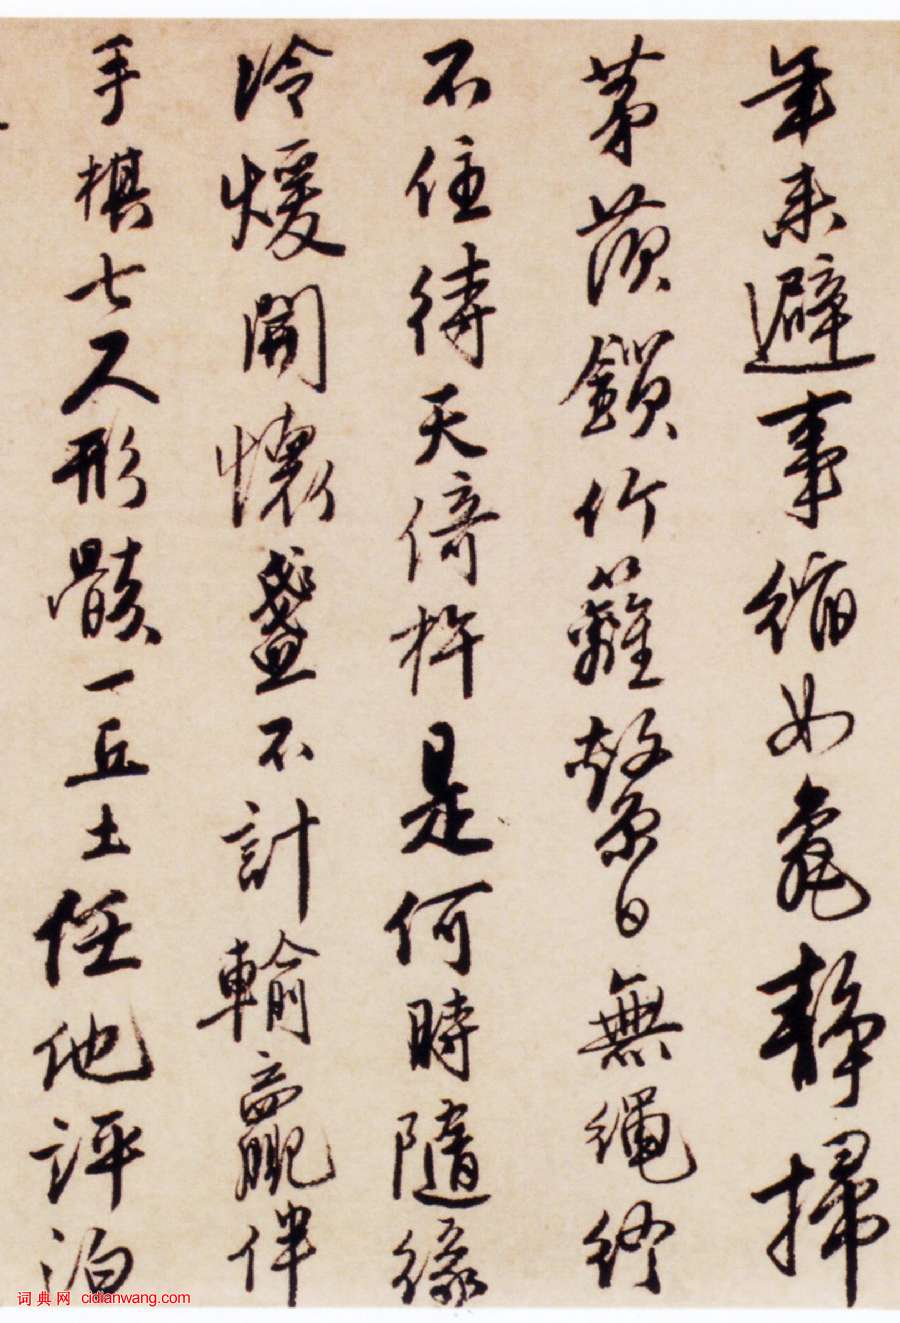 年来避事縮如龜静掃
茅茨鎖竹籬繫日無繩終
不住待天倚杵是何時隨緣
冷煖開懷盞不計輸贏伴
手棋七尺形骸一丘土任他評泊
词典网 cidianwang.com